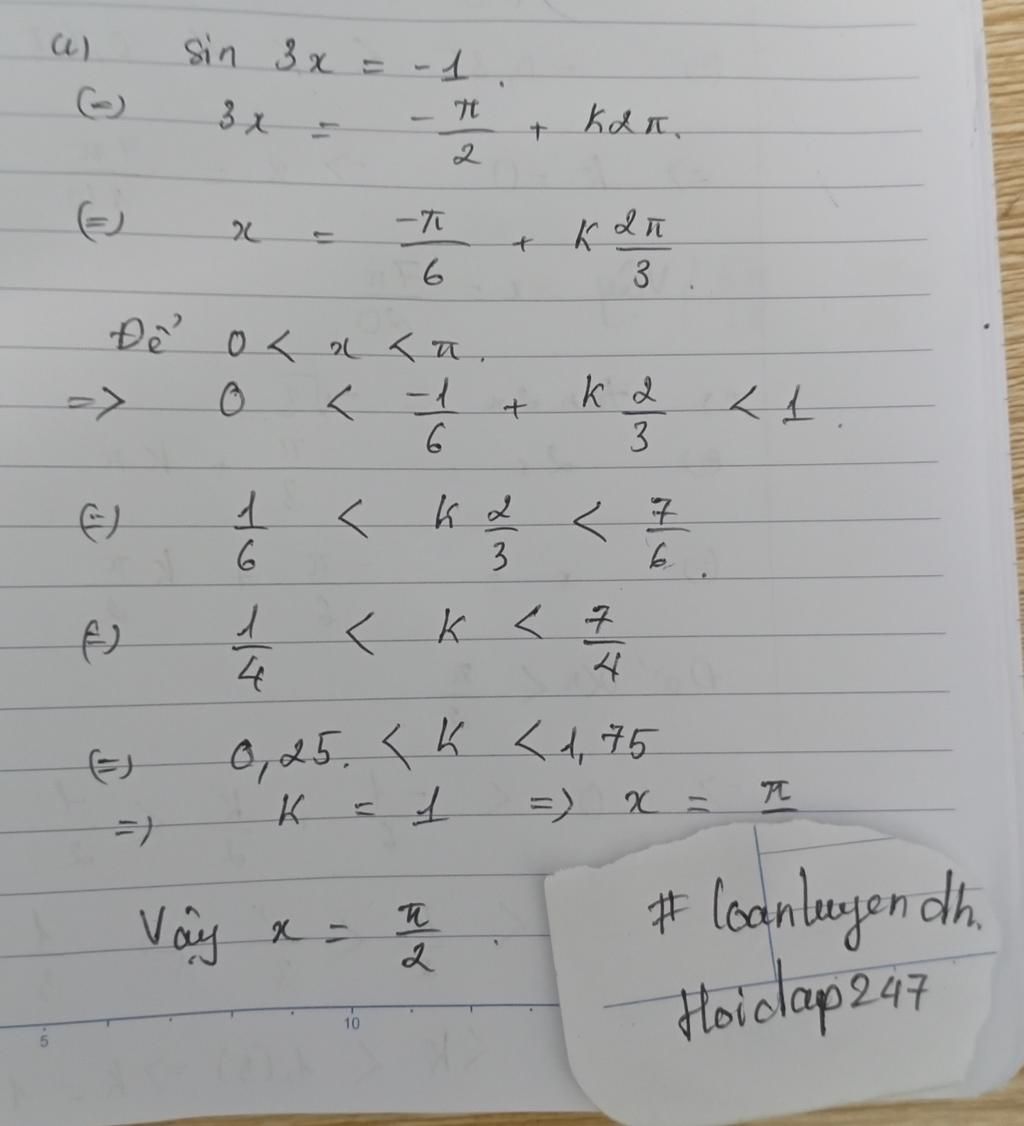 a) sin 3x = -1.
(=) 3x = -π/2 + K2π.
(=) x = -π/6 + K 2π/3.
Để 0 < x < π.
=> 0 < -1/6 + K 2/3 < 1.
(=) 1/6 < K 2/3 < 7/6.
(=) 1/4 < K < 7/4
(=) 0,25. < K < 1,75
=) K = 1 =) x = π
Vậy x = π/2.
# loanluyendh.
Hoidap247
5 10